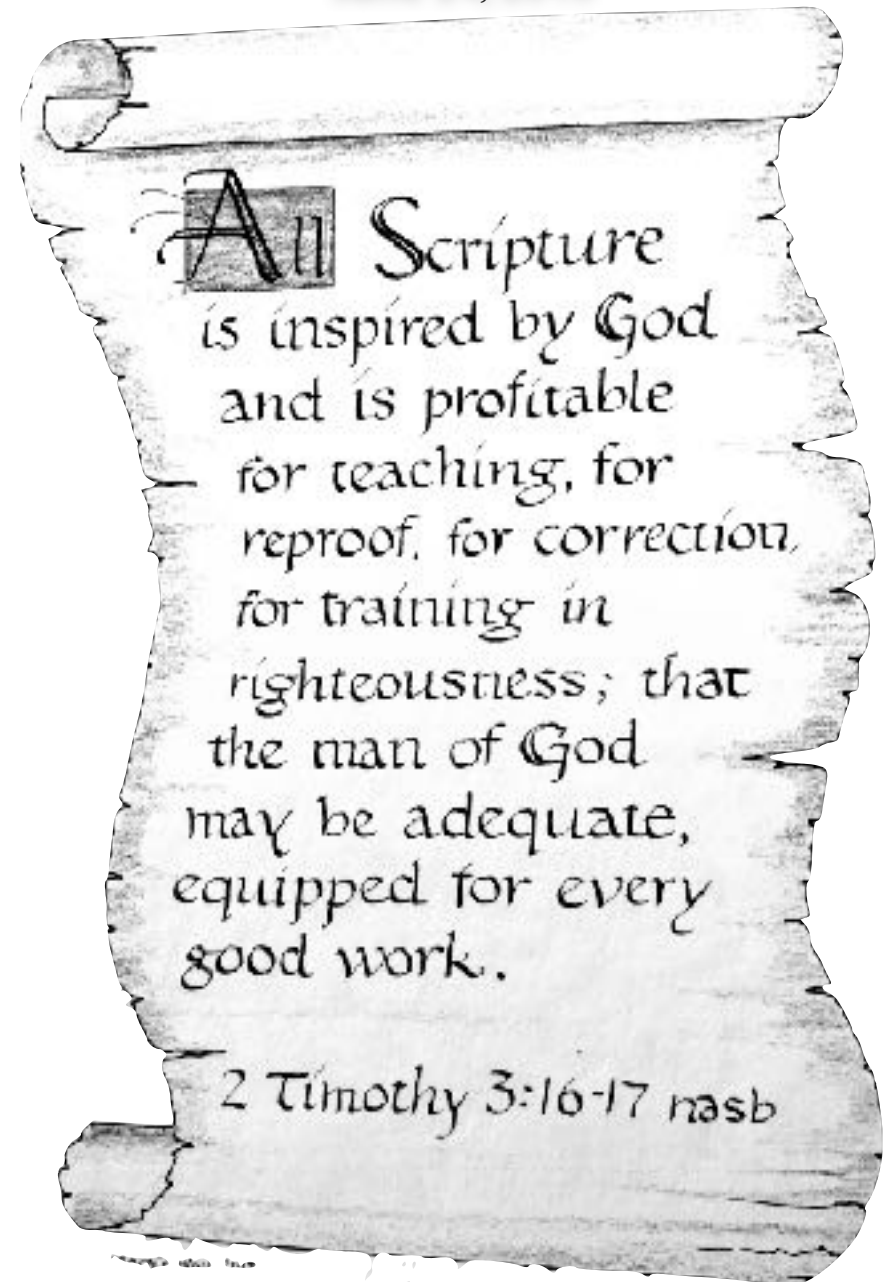 All Scripture
is inspired by God
and is profitable
for teaching, for
reproof, for correction,
for training in
righteousness; that
the man of God
may be adequate,
equipped for every
good work..
2 Timothy 3:16-17 nasb